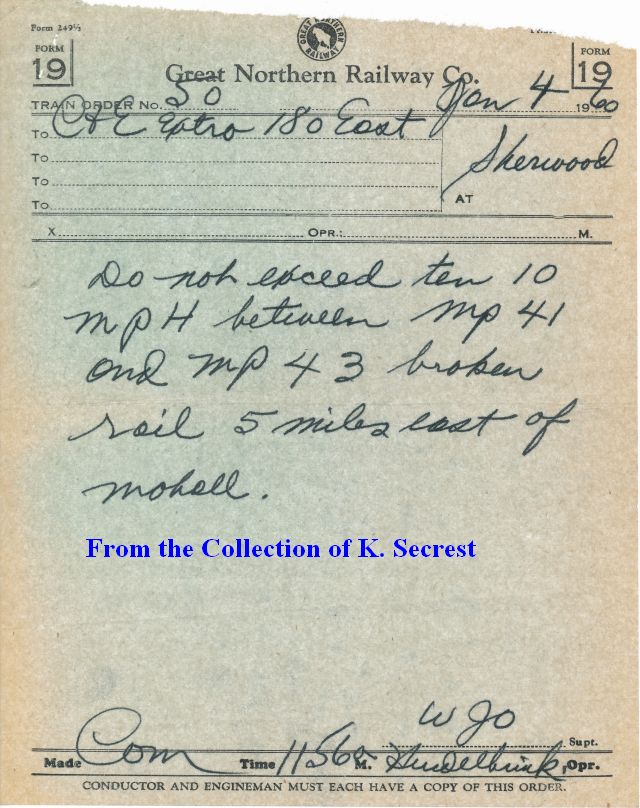 Form 249½
FORM 19
GREAT NORTHERN RAILWAY
FORM 19
Great Northern Railway Co.
TRAIN ORDER No. 50 Jan 4 1960
To C&E Extra 180 East
To
To
To
AT Sherwood
X OPR.: M.
Do not exceed ten 10
MPH between MP 41
and MP 43 broken
rail 5 miles east of
Mohall.
From the Collection of K. Secrest
WJO Supt.
Made Com Time 1156 M. Opr.
CONDUCTOR AND ENGINEMAN MUST EACH HAVE A COPY OF THIS ORDER.